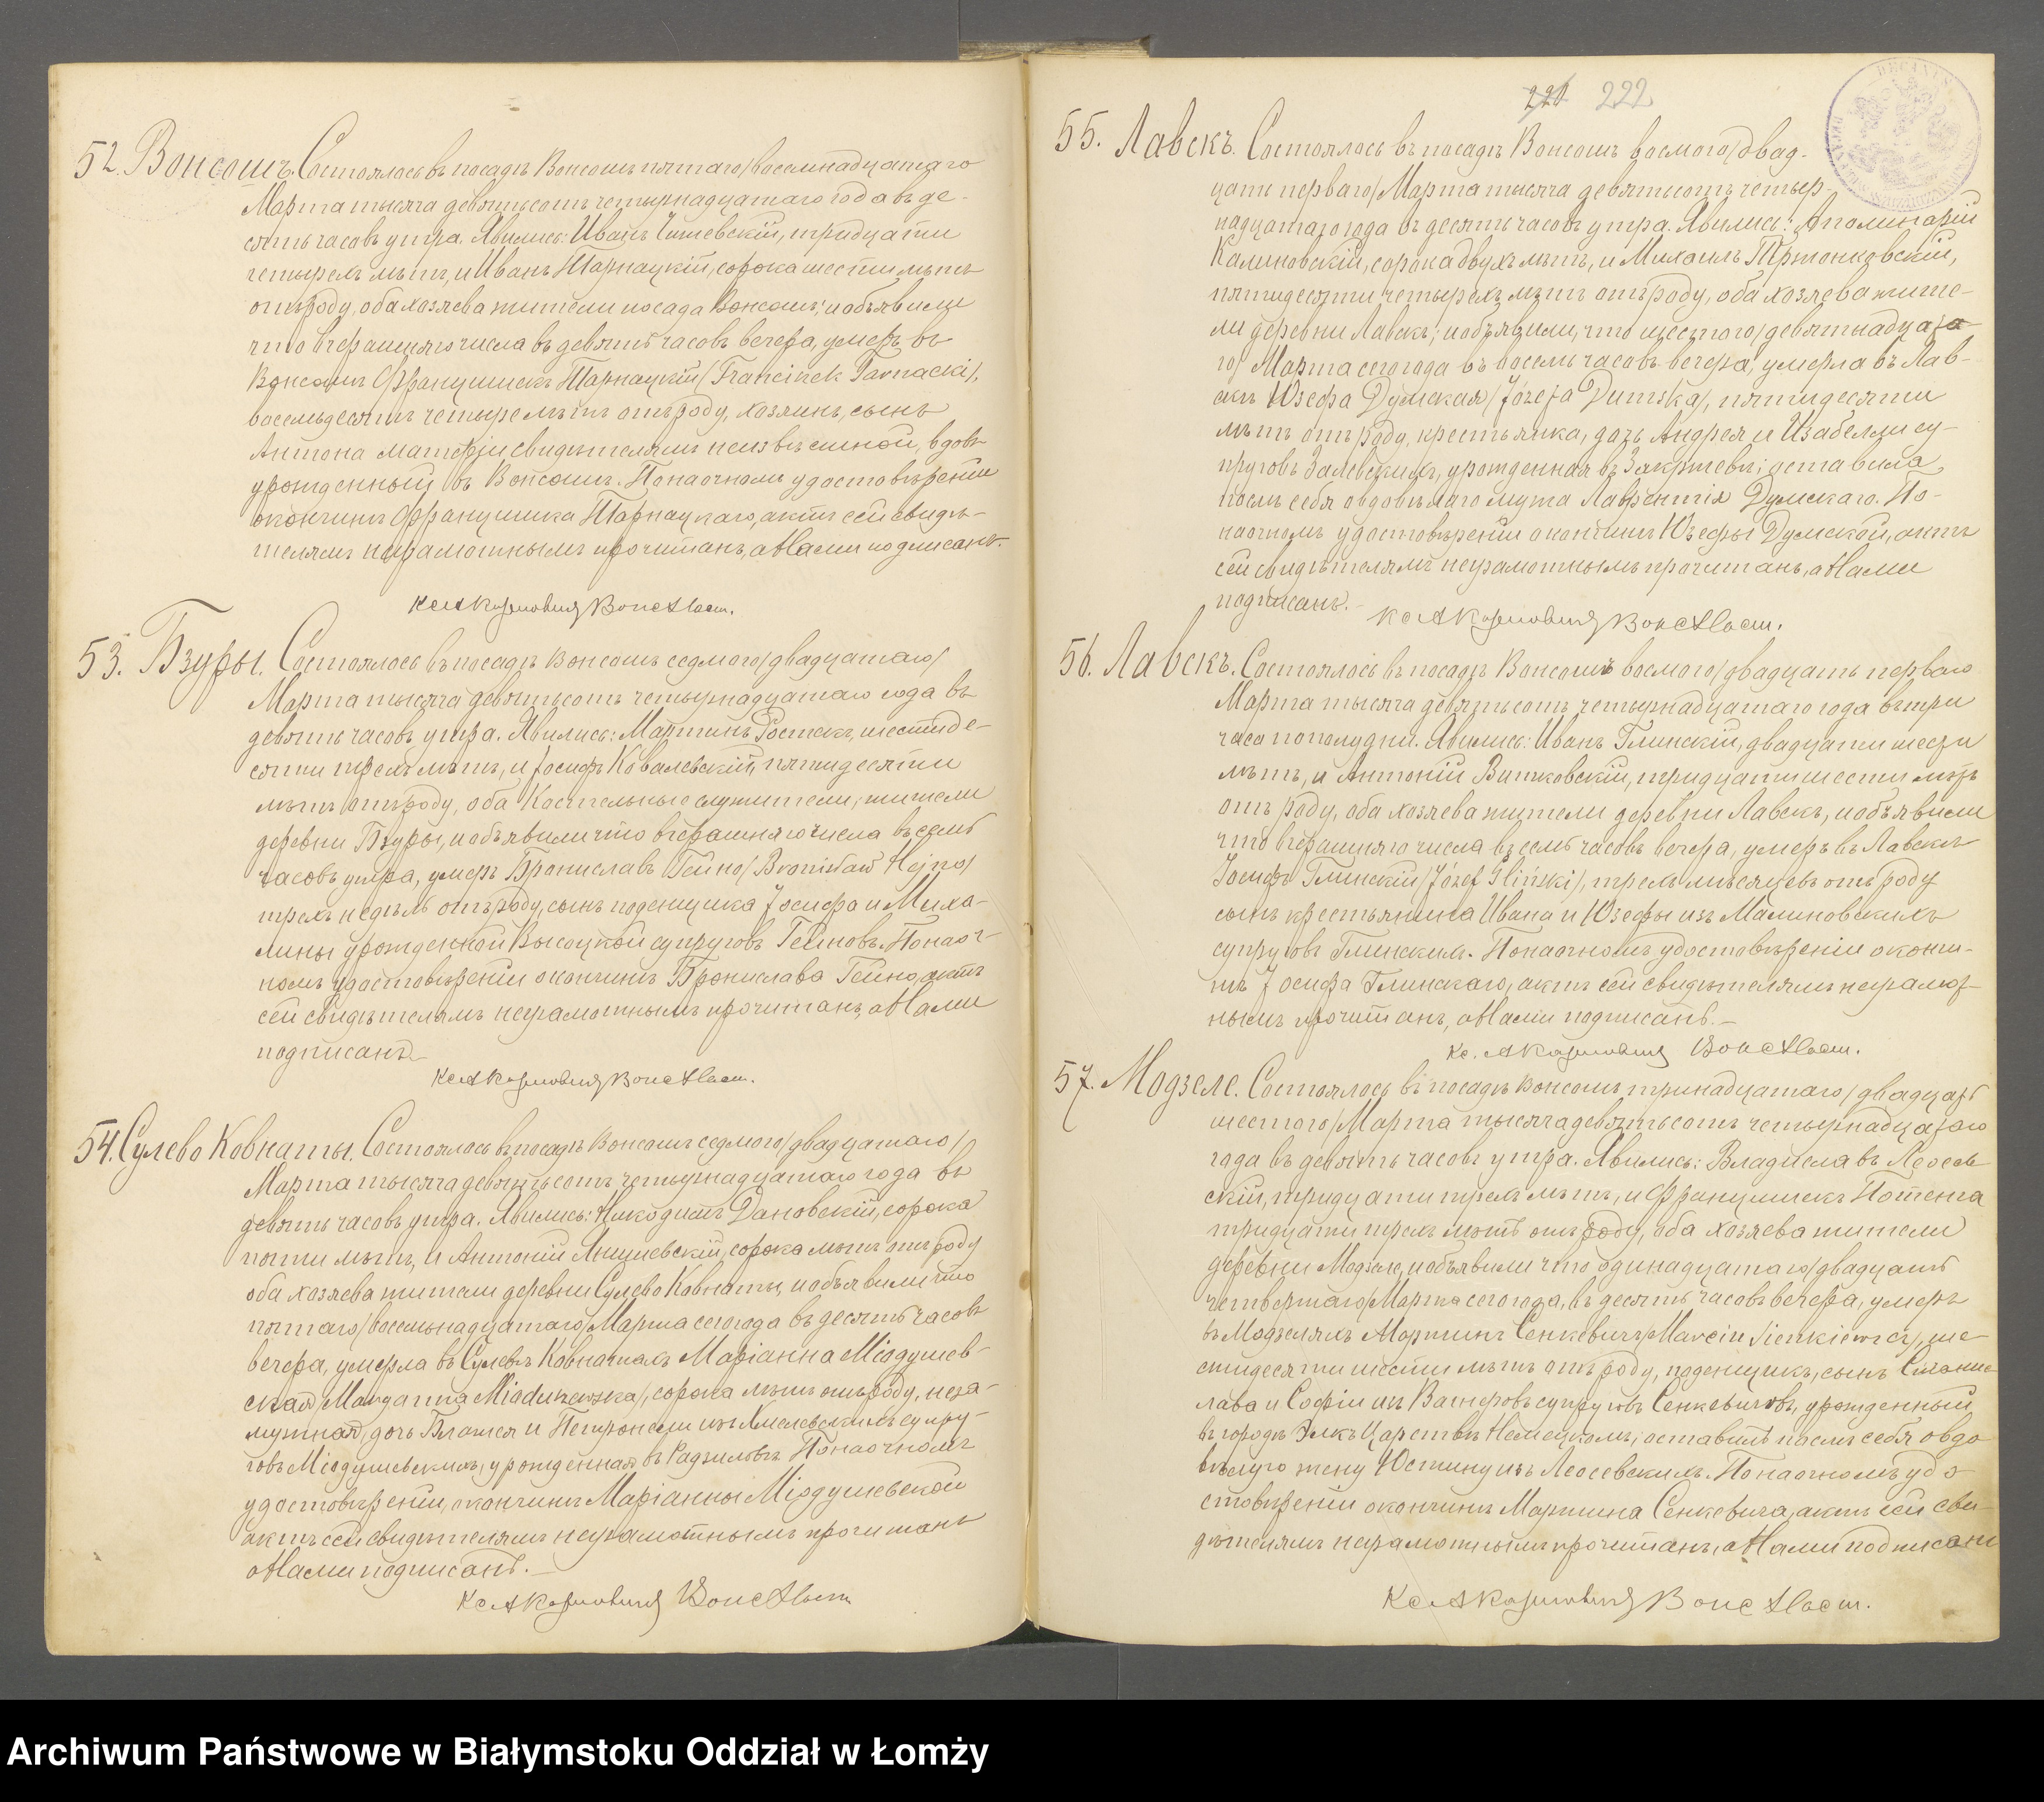 52. Вонсошъ. Состоялось въ посадѣ Вонсошъ пятаго/восемнадцатаго
Марта тысяча девятьсотъ четырнадцатаго года въ де-
сять часовъ утра. Явились: Иванъ, тридцати
четырехъ лѣтъ, и Иванъ Тарнацкій, сорока шести лѣтъ
отъ роду, оба хозяева жители посада Вонсошъ, и объявили
что вчерашняго числа въ девять часовъ вечера, умеръ въ
Вонсошѣ Францишекъ Тарнацкій /Franciszek Tarnacki/,
восемьдесятъ четыре лѣтъ отъ роду, хозяинъ, сынъ
Антона матери свидѣтелямъ неизвѣстной, вдовъ
урожденный въ Вонсошѣ. По наочномъ удостовѣреніи
окончинѣ Францишка Тарнацкаго, актъ сей свидѣ-
телямъ неграмотнымъ прочитанъ, а Нами подписанъ.
53. Бзуры. Состоялось въ посадѣ Вонсошъ седмого/двадцатаго/
Марта тысяча девятьсотъ четырнадцатаго года въ
девять часовъ утра. Явились: Мартинъ Ростекъ, шестиде-
сяти трехъ лѣтъ, и Іосифъ Ковалевскій, пятидесяти
лѣтъ отъ роду, оба Костельные служители, жители
деревни Бзуры, и объявили что вчерашняго числа въ семь
часовъ утра, умеръ Брониславъ Гейно/Bronisław Hejno/
трехъ недѣль отъ роду, сынъ поденщика Іосифа и Миха-
лины урожденной Высоцкой супруговъ Гейновъ. По наоч-
номъ удостовѣреніи окончинѣ Бронислава Гейно, актъ
сей свидѣтелямъ неграмотнымъ прочитанъ, а Нами
подписанъ.
54. Сулево Ковнаты. Состоялось въ посадѣ Вонсошъ седмого/двадцатаго/
Марта тысяча девятьсотъ четырнадцатаго года въ
девять часовъ утра. Явились: Никодимъ Дановскій, сорока
пяти лѣтъ, и Антоній, сорока лѣтъ отъ роду
оба хозяева жители деревни Сулево Ковнаты, и объявили что
пятаго/восемьнадцатаго/Марта сего года въ десять часовъ
вечера, умерла въ Сулевѣ Ковнатахъ Маріанна Міодушев-
ская/Maryanna Mioduszewska/, сорока лѣтъ отъ роду, неза-
мужная, дочь Блажея и Петронели изъ Хмелевскихъ супру-
говъ Міодушевскихъ, урожденная въ Радзиловѣ. По наочномъ
удостовѣреніи, окончинѣ Маріанны Міодушевской
актъ сей свидѣтелямъ неграмотнымъ прочитанъ
а Нами подписанъ.
221 222
55. Лавскъ. Состоялось въ посадѣ Вонсошъ восмого/двад-
цать перваго/Марта тысяча девятьсотъ четыр-
надцатаго года въ десять часовъ утра. Явились: Аполинарій
Калиновскій, сорока двухъ лѣтъ, и Михаилъ Тржонковскій,
пятидесяти четырехъ лѣтъ отъ роду, оба хозяева жите-
ли деревни Лавскъ; и объявили, что шестого/девятнадцата-
го/ Марта сего года въ восемь часовъ вечера, умерла въ Лав-
скѣ Юзефа Думская/Józefa Dumska/, пятидесяти
лѣтъ отъ роду, крестьянка, дочь Андрея и Изабелли су-
пруговъ Залевскихъ, урожденная въ Закржеви; оставила
послѣ себя овдовѣлаго мужа Лаврентія Думскаго. По-
наочномъ удостовѣреніи окончинѣ Юзефы Думской, актъ
сей свидѣтелямъ неграмотнымъ прочитанъ, а Нами
подписанъ.
56. Лавскъ. Состоялось въ посадѣ Вонсошъ восмого/двадцать перваго
Марта тысяча девятьсотъ четырнадцатаго года въ три
часа пополудни. Явились: Иванъ Глинскій, двадцати шести
лѣтъ, и Антоній Витковскій, тридцати шести лѣтъ
отъ роду, оба хозяева жители деревни Лавскъ, и объявили
что вчерашняго числа въ семь часовъ вечера, умеръ въ Лавскѣ
Іосифъ Глинскій/Józef Gliński/, трехъ мѣсяцевъ отъ роду
сынъ крестьянина Ивана и Юзефы изъ Малиновскихъ
супруговъ Глинскихъ. По наочномъ удостовѣреніи окончи-
нѣ Іосифа Глинскаго, актъ сей свидѣтелямъ неграмот-
нымъ прочитанъ, а Нами подписанъ.
57. Модзеле. Состоялось въ посадѣ Вонсошъ тринадцатаго/двадцать
шестого/Марта тысяча девятьсотъ четырнадцатаго
года въ девять часовъ утра. Явились: Владиславъ Леосев-
скій, тридцати трехъ лѣтъ, и Францишекъ Потенга
тридцати трехъ лѣтъ отъ роду, оба хозяева жители
деревни Модзеле, и объявили что одинадцатаго/двадцать
четвертаго/Марта сего года, въ десять часовъ вечера, умеръ
въ Модзеляхъ Мартинъ Сенкевичъ/Marcin Sienkiewicz/, ше-
стидесяти шести лѣтъ отъ роду, поденщикъ, сынъ Станис-
лава и Софіи изъ Вагнеровъ супруговъ Сенкевичовъ, урожденный
въ городѣ Элкъ Царствѣ Немецкомъ; оставилъ послѣ себя овдо
вѣвшую жену Юстину изъ Леосевскихъ. По наочномъ удо-
стовѣреніи окончинѣ Мартина Сенкевича, актъ сей сви-
дѣтелямъ неграмотнымъ прочитанъ, а Нами подписанъ
Archiwum Państwowe w Białymstoku Oddział w Łomży